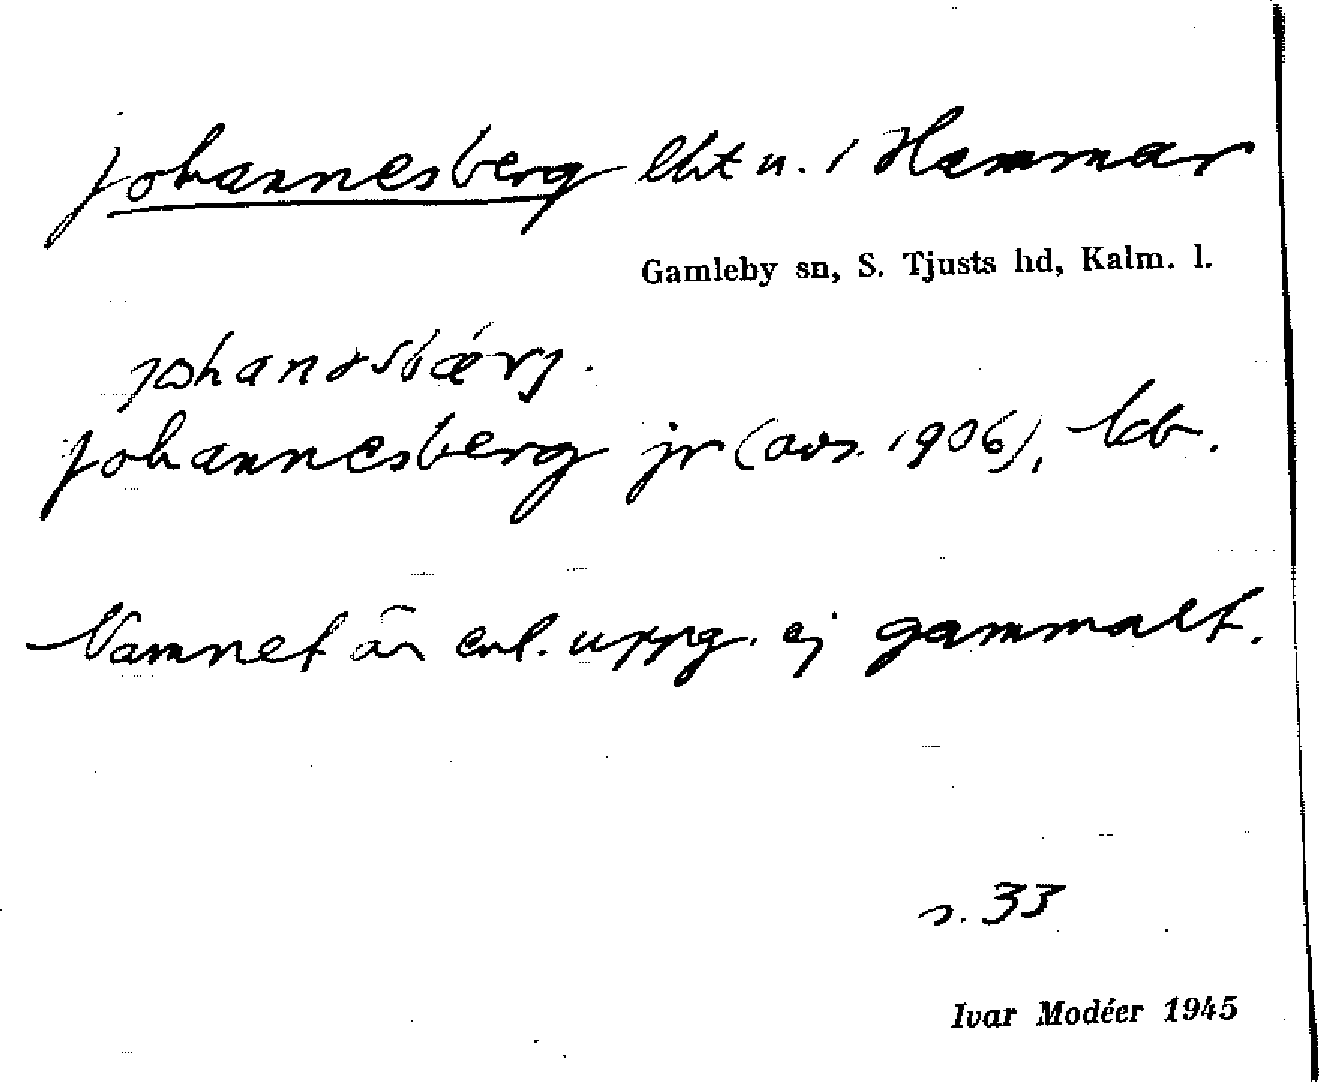 Johannesberg lht u. i Hammar
Gamleby sn, S. Tjusts hd, Kalm. l.
johanəsbǽrj.
Johannesberg jr (avs. 1906), kb.
Namnet är enl. uppg. ej gammalt.
s. 33
Ivar Modéer 1945